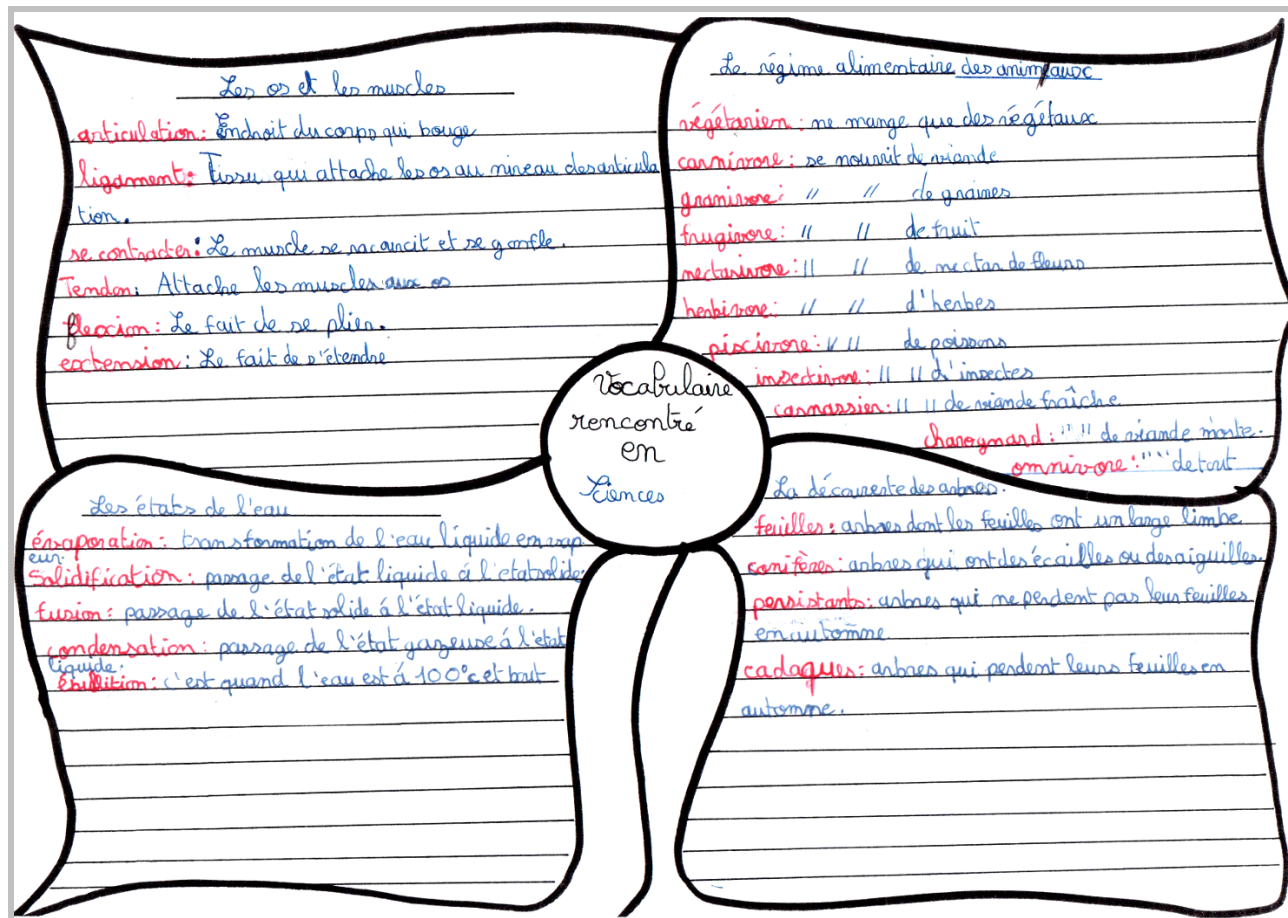 Les os et les muscles
articulation: Endroit du corps qui bouge
ligament: Tissu qui attache les os au niveau des articula
tion.
se contracter: Le muscle se racourcit et se gonfle.
Tendon: Attache les muscles aux os
flexcion: Le fait de se plier.
extension: Le fait de s'étendre
Le régime alimentaire des animaux
végétarien: ne mange que des végétaux
carnivore: se nourrit de viande
granivore: " " de graines
frugivore: " " de fruit
nectarivore: " " de nectar de fleurs
herbivore: " " d'herbes
piscivore: " " de poissons
insectivore: " " d'insectes
carnassier: " " de viande fraîche
charognard: " " de viande morte.
omnivore: " " de tout
Vocabulaire
rencontré
en
Sciences
Les états de l'eau
évaporation: transformation de l'eau liquide en vap
eur.
Solidification: passage de l'état liquide á l'etat solide.
fusion: passage de l'état solide á l'état liquide.
condensation: passage de l'état gazeuse á l'etat
liquide.
ébullition: c'est quand l'eau est á 100°c et bout
La découverte des arbres.
feuilles: arbres dont les feuilles ont un large limbe
conifères: arbres qui ont des écailles ou des aiguilles.
persistants: arbres qui ne perdent pas leus feuilles
en automne
cadaques: arbres qui perdent leurs feuilles en
automne.